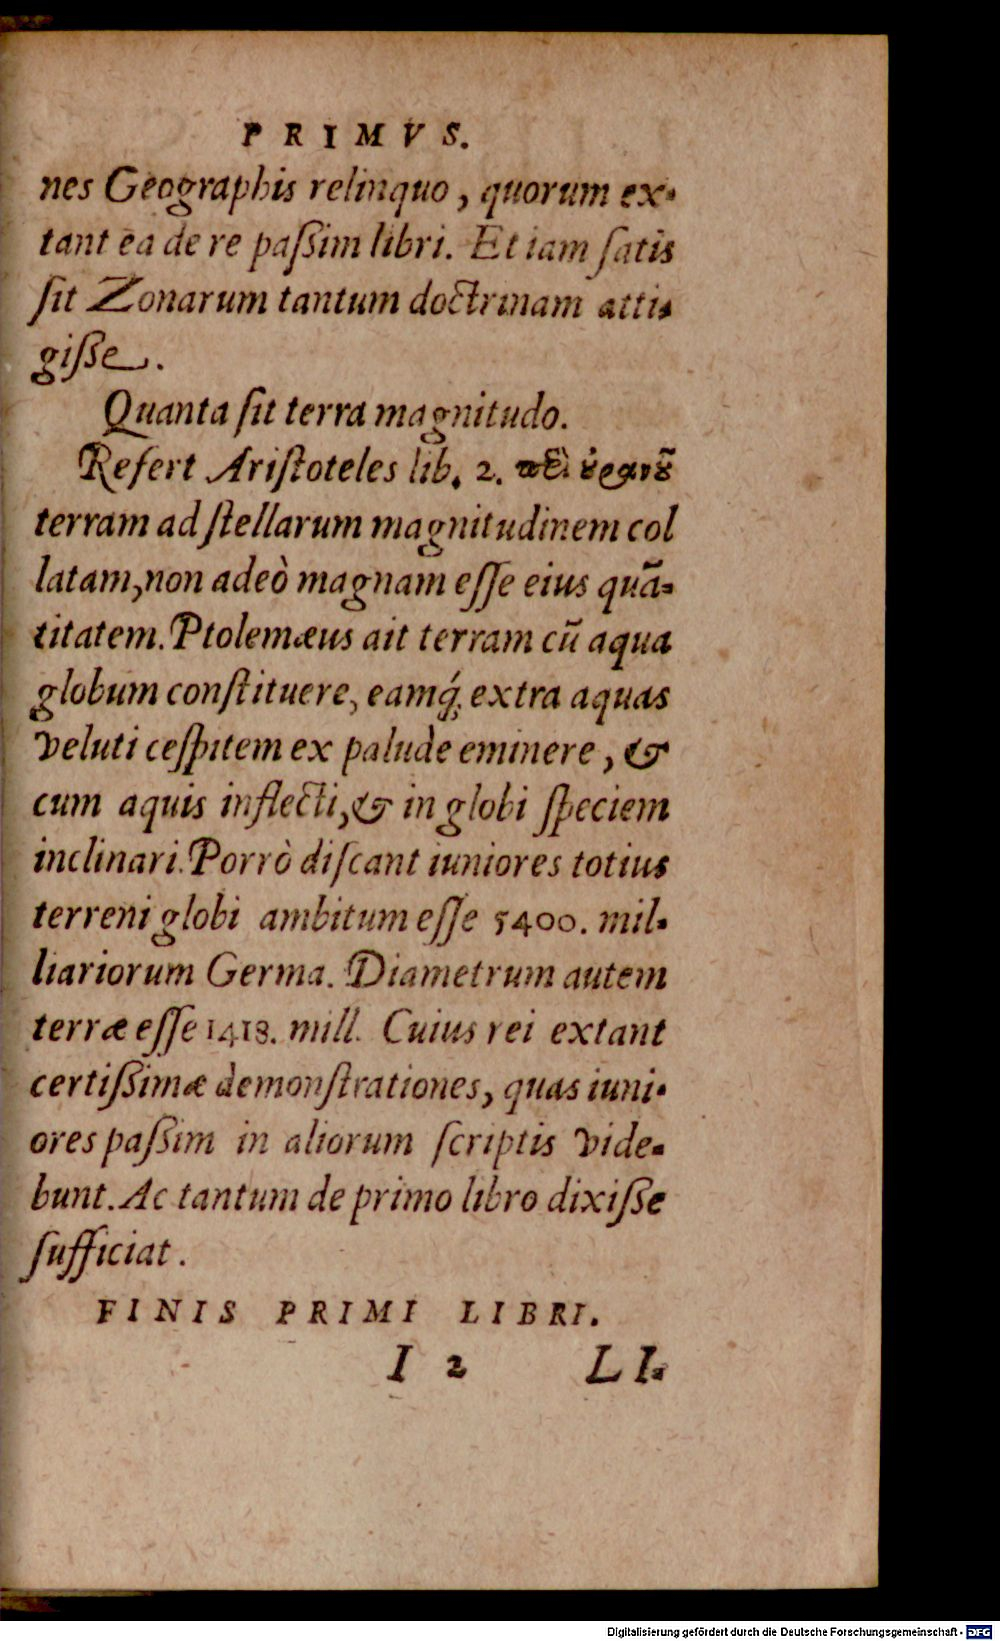 PRIMVS.
nes Geographis relinquo, quorum ex-
tant ea de re paßim libri. Et iam ſatis
ſit Zonarum tantum doctrinam atti-
giſſe.
Quanta ſit terra magnitudo.
Refert Ariſtoteles lib. 2. περὶ οὐρανοῦ
terram ad ſtellarum magnitudinem col
latam, non adeò magnam eſſe eius quã-
titatem. Ptolemæus ait terram cũ aqua
globum conſtituere, eamq́; extra aquas
veluti ceſpitem ex palude eminere, &
cum aquis inflecti, & in globi ſpeciem
inclinari. Porrò diſcant iuniores totius
terreni globi ambitum eſſe 5400. mil-
liariorum Germa. Diametrum autem
terræ eſſe 1718. mill. Cuius rei extant
certißimæ demonſtrationes, quas iuni-
ores paßim in aliorum ſcriptis vide-
bunt. Ac tantum de primo libro dixiſſe
ſufficiat.
FINIS PRIMI LIBRI.
I 2 LI-
Digitalisierung gefördert durch die Deutsche Forschungsgemeinschaft - DFG